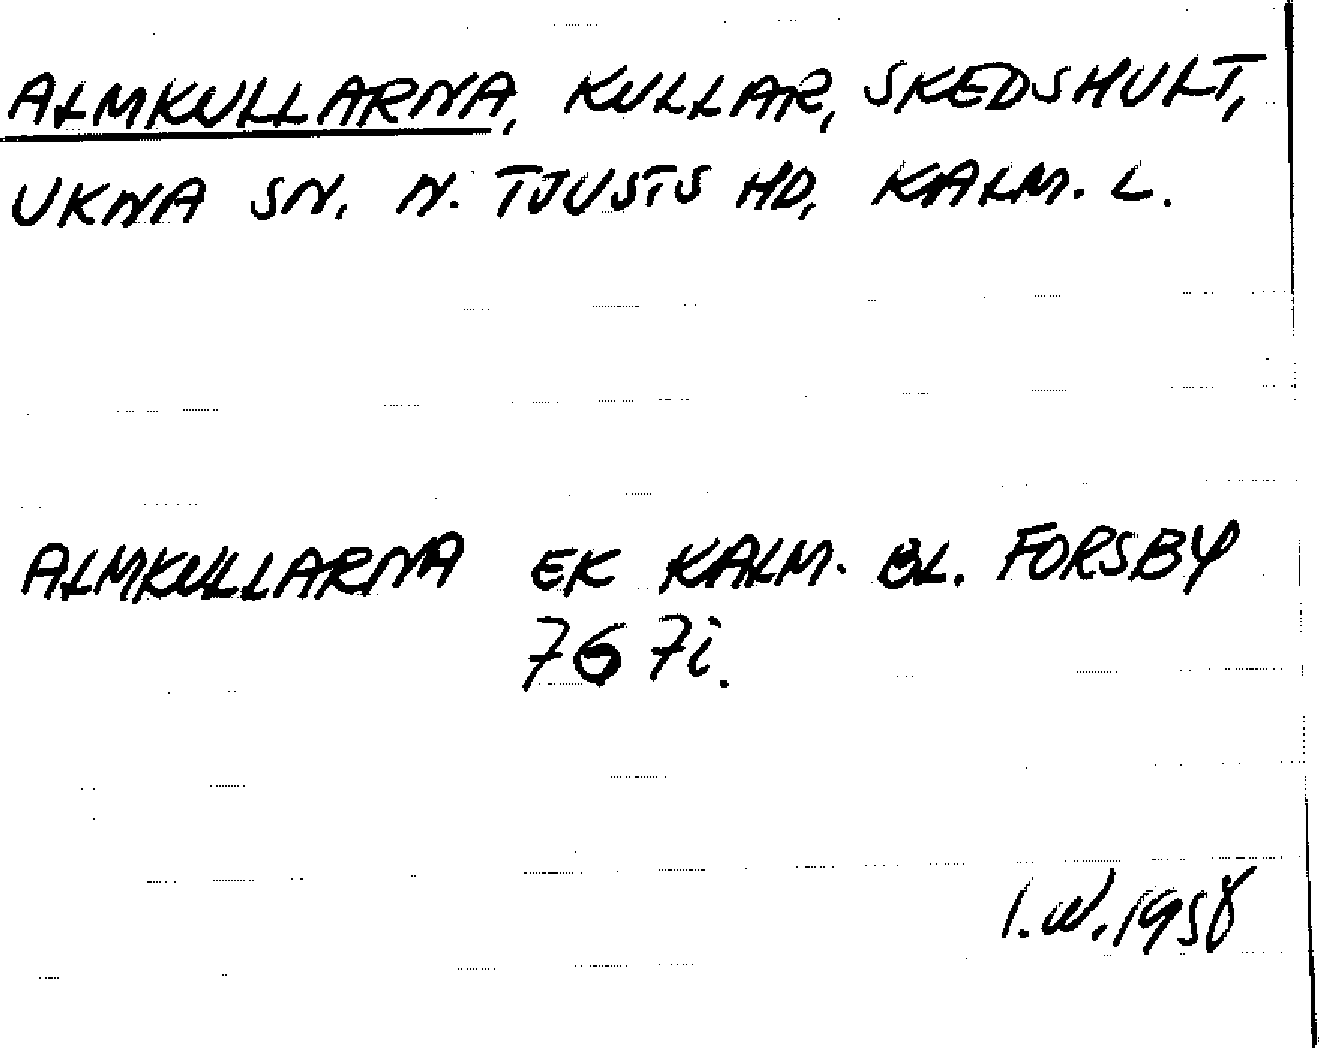 ALMKULLARNA, KULLAR, SKEDSHULT,
UKNA SN. N. TJUSTS HD, KALM. L.
ALMKULLARNA EK KALM. BL. FORSBY
76 7i.
I.W.1958